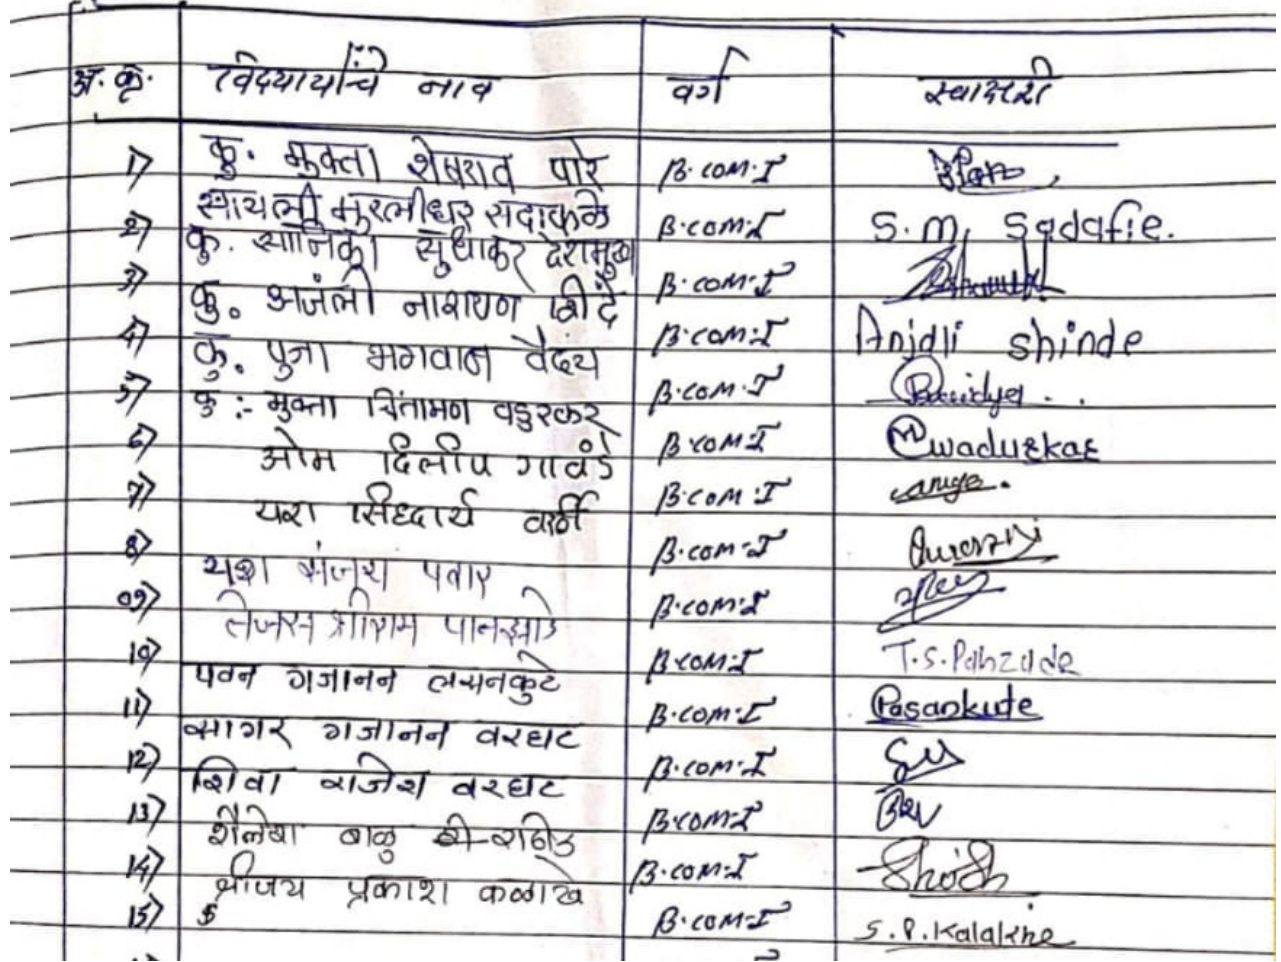 अ. कृ. विदयार्याचे नाव वर्ग स्वाक्षरी
1) कु. मुक्ता शेषराव पोरे B.COM.I
2) सायली मुरलीधर सदाफळे B.COM.I S.M. Sadafle.
3) कु. सानिका सुधाकर देशमुख B.COM.I
4) कु. अजंली नारायण शींदे B.COM.I Anjali shinde
5) कु. पुजा भगवान वैदय B.COM.I Bvaidya..
6) कु :- मुक्ता चिंतामण वडुरकर B.COM.I Mwadurkar
7) ओम दिलीप गावंडे B.COM.I
8) यश सिध्दार्थ B.COM.I
09) यश संजय पवार B.COM.I
10) तेजस श्रीराम पानझाडे B.COM.I T.S.Panzade
11) पवन गजानन लसनकुटे B.COM.I Pasankute
12) सागर गजानन वरघट B.COM.I
13) शिवा राजेश वरघट B.COM.I
14) शैलेश बाळु B.COM.I
15) श्रीजय प्रकाश कळाखे B.COM.I S.P.Kalakhe